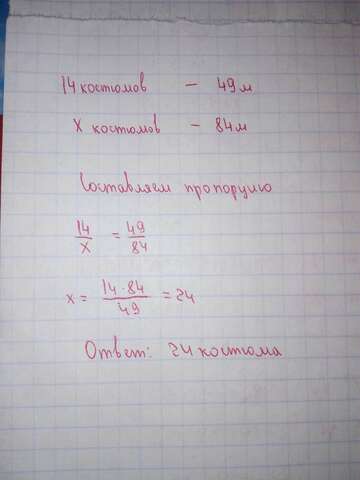 14 костюмов - 49м
X костюмов - 84м
Составляем пропорцию
14/X = 49/84
x = 14·84/49 = 24
Ответ: 24 костюма